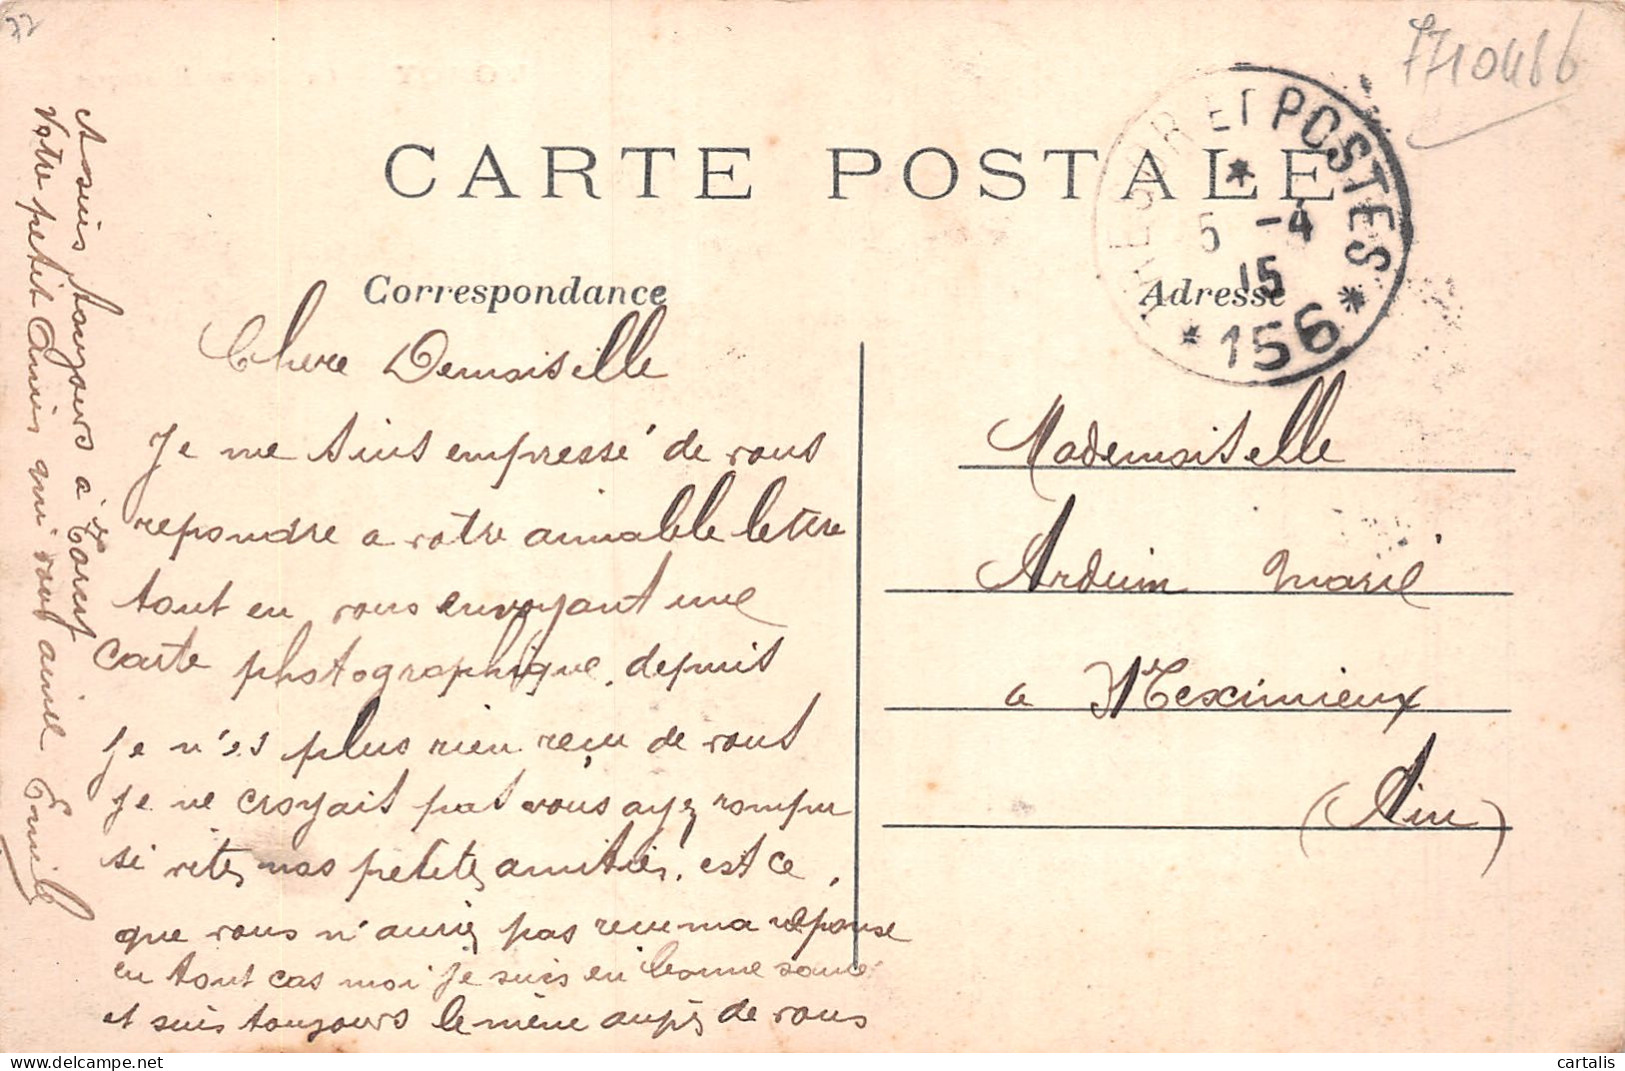 72
7710466
CARTE POSTALE
TRESOR ET POSTES
5 -4
15
* 156 *
Correspondance
Adresse
Chere Demoiselle
Je me suis empressé de vous
repondre a votre aimable lettre
tout en vous envoyant une
carte photographique. depuis
je n'es plus rien reçu de vous
je ne croyait pas vous ayez rompu
si vites nos petites amitiés. est ce
que vous n'auriez pas recu ma reponse
en tout cas moi je suis en bonne santé
et suis toujours le même auprès de vous
Je suis toujours à
Votre petit Amis qui vous aime Emile
Mademoiselle
Arduin Marie
a Meximieux
(Ain)
cartalis